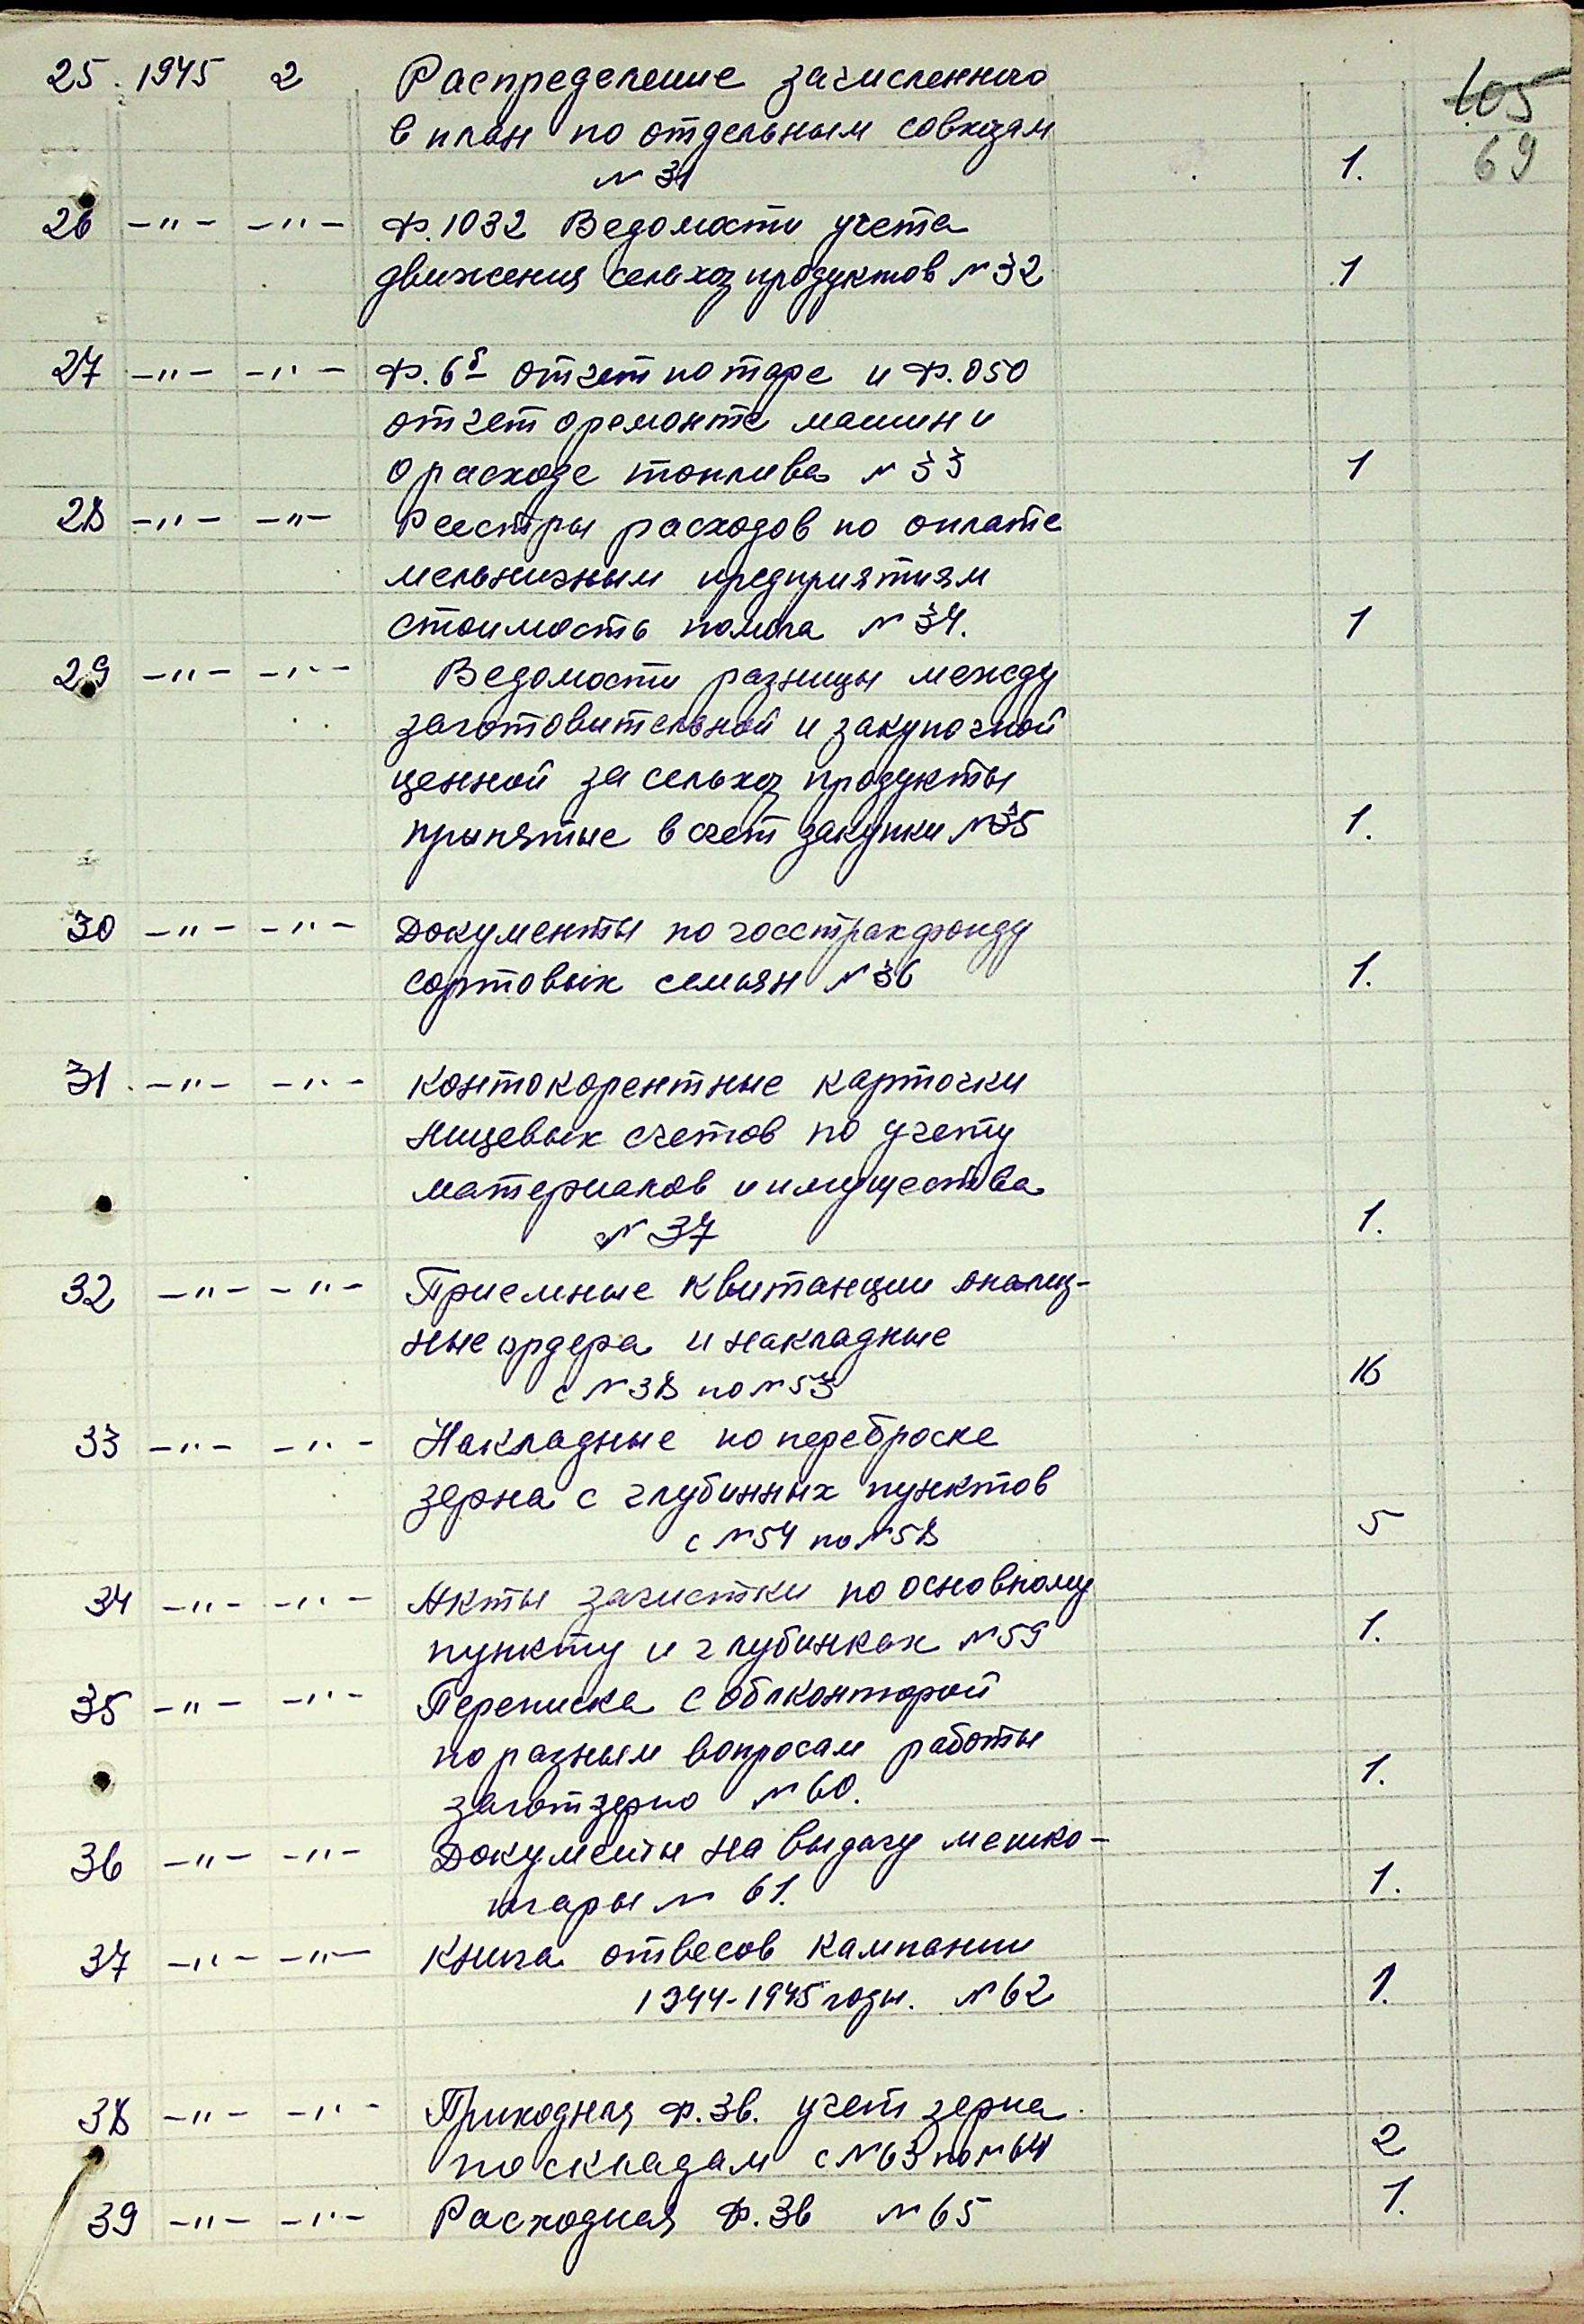 105
69
25. 1945 2 Распределение зачисленного
в план по отдельным совхозам
N 31 1.
26 -"- -"- Ф.1032 Ведомости учета
движения сельхоз продуктов N 32 1
27 -"- -"- Ф. 6б отчет по таре и Ф. 050
отчет о ремонте машин и
о расходе топлива N 33 1
28 -"- -"- Реестры расходов по оплате
мельничным предприятиям
стоимость помола N 34. 1
29 -"- -"- Ведомости разницы между
заготовительной и закупочной
ценной за сельхоз продукты
принятые в счет закупки N35 1.
30 -"- -"- Документы по госстрахфонду
сортовых семьян N 36 1.
31. -"- -"- Контокорентные карточки
лицевых счетов по учету
материалов и имущества
N 37 1.
32 -"- -"- Приемные квитанции анализ-
ные ордера и накладные
с N 38 по N 53 16
33 -"- -"- Накладные по переброске
зерна с глубинных пунктов
с N 54 по N 58 5
34 -"- -"- Акты зачистки по основному
пункту и глубинках N 59 1.
35 -"- -"- Переписка с облконторой
по разным вопросам работы
заготзерно N 60. 1.
36 -"- -"- Документы на выдачу мешко-
тары N 61. 1.
37 -"- -"- Книга отвесов кампании
1944-1945 годы. N 62 1.
38 -"- -"- Приходная ф. 3в. учет зерна
по складам с N 63 по N 64 2
39 -"- -"- Расходная Ф. 3в N 65 1.